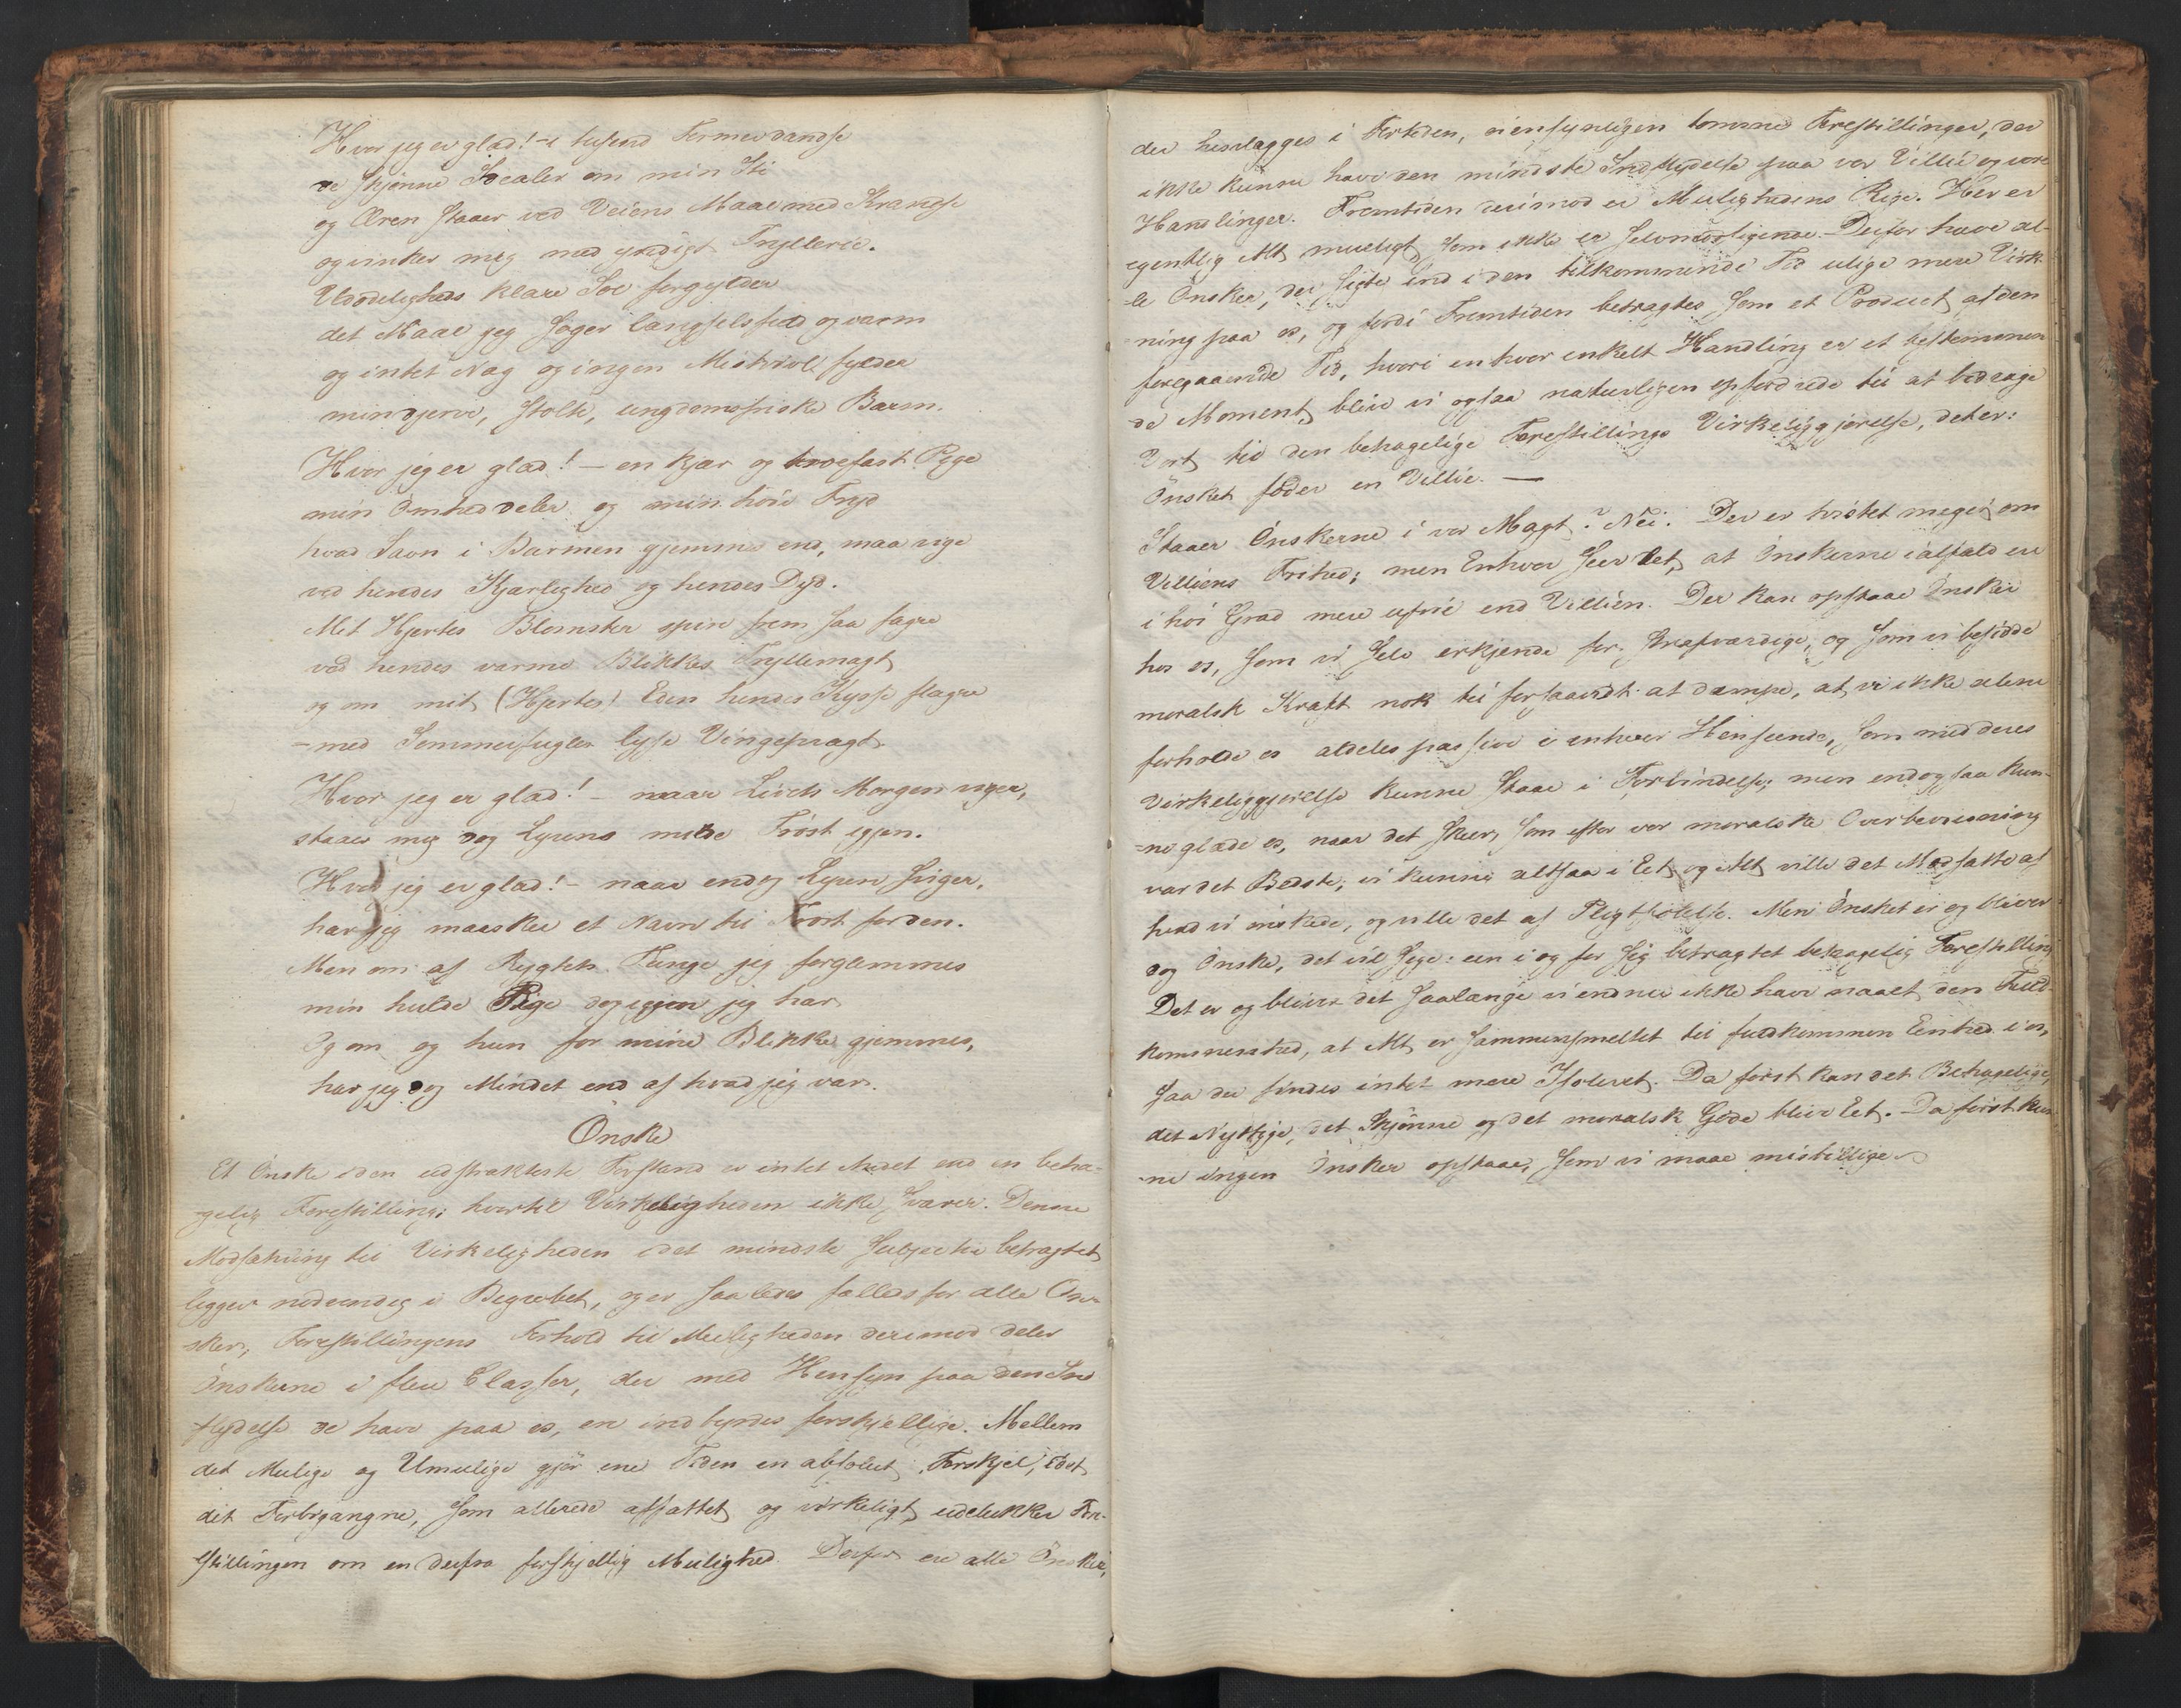 Hvor jeg er glad! – i tusend Former dandse
de skjønne Idealer om min Sti
og Æren staaer ved Veiens Maal med Krandse
og vinker mig med yndigt Tryllerie.
Udødeligheds klare Sol forgylder
det Maal jeg søger længselsfuld og varm
og intet Nag og ingen Mistvivl fylder
min djerve, stolte, ungdomsfriske Barm.
Hvor jeg er glad! – en kjær og trofast Pige
min Ømhed deler og min høie Fryd
hvad Savn i Barmen gjemmes end, maa vige
ved hendes Kjærlighed og hendes Dyd.
Mit Hjertes Blomster spire frem saa fagre
ved hendes varme Blikkes Tryllemagt
og om mit (Hjertes) Eden hendes Kysse flagre
– med Sommerfugles lyse Vingepragt.
Hvor jeg er glad! – naar Livets Morgen viger,
staaer mig dog Lyrens milde Trøst igjen.
Hvor jeg er glad! – naar endog Lyren sviger,
har jeg maaskee et Navn til Trøst for den.
Men om af Rygtets Tunge jeg forglemmes
min hulde Pige dog igjen jeg har
Og om og hun for mine Blikke gjemmes,
har jeg dog Mindet end af hvad jeg var.
Ønske
Et Ønske i den udstrakteste Forstand er intet Andet end en beha-
gelig Forestilling; hvortil Virkeligheden ikke svarer. Denne
Modsætning til Virkeligheden i det mindste subjectiv betragtet
ligger nødvendig i Begrebet, og er saaledes fælleds for alle Øn-
sker; Forestillingens Forhold til Muligheden derimod deler
Ønskerne i flere Classer, der med Hensyn paa den Ind
flydelse de have paa os, ere indbyrdes forskjellige. Mellem
det Mulige og Umulige gjør ene Tiden en absolut Forskjel, idet
det Forbigangne, som allerede afsattet og virkeligt, udelukker Fore-
stillingen om en derfra forskjellig Mulighed. Derfor ere alle Ønsker,
der henlægges i Fortiden, øiensynligen tomme Forestillinger, der
ikke kunne have den mindste Indflydelse paa vor Villie og vore
Handlinger. Fremtiden derimod er Mulighedens Rige. Her er
egentlig Alt mueligt som ikke er selvmodsigende. Derfor have al-
le Ønsker, der sigte ind i den tilkommende Tid ulige mere Virk-
ning paa os, og fordi Fremtiden betragtes som et Product af den
foregaaende Tid, hvori enhver enkelt Handling er et bestemmen
de Moment, blive vi ogsaa naturligen opfordrede til at bidrage
Vort til den behagelige Forestillings Virkeliggjørelse, det er:
Ønsket føder en Villie. —
Staaer Ønskerne i vor Magt? Nei. Der er tvistet meget om
Villiens Frihed; men Enhver seer let, at Ønskerne ialfald ere
i høi Grad mere ufrie end Villien. Der kan opstaae Ønsker
hos os, som vi selv erkjende for strafværdige, og som vi besidde
moralsk Kraft nok til forsaavidt at dæmpe, at vi ikke alene
forholde os aldeles passive i enhver Henseende, som med deres
Virkeliggjørelse kunne staae i Forbindelse; men endogsaa kun-
ne glæde os, naar det skeer, som efter vor moralske Overbeviisning
var det Bedste; vi kunne altsaa i Eet og Alt ville det Modsatte af
hvad vi ønskede, og ville det af Pligtfølelse. Men Ønsket er og bliver
dog Ønske, det vil sige: een i og for sig betragtet behagelig Forestilling
Det er og bliver det saalænge vi endnu ikke have naaet den Fuld-
kommenhed, at Alt er sammensmeltet til fuldkommen Eenhed i os,
saa der findes intet mere Isoleret. Da først kan det Behagelige,
det Nyttige, det Skjønne og det moralsk Gode blive Eet. Da først kun
ne ingen Ønsker opstaae, som vi maae misbillige